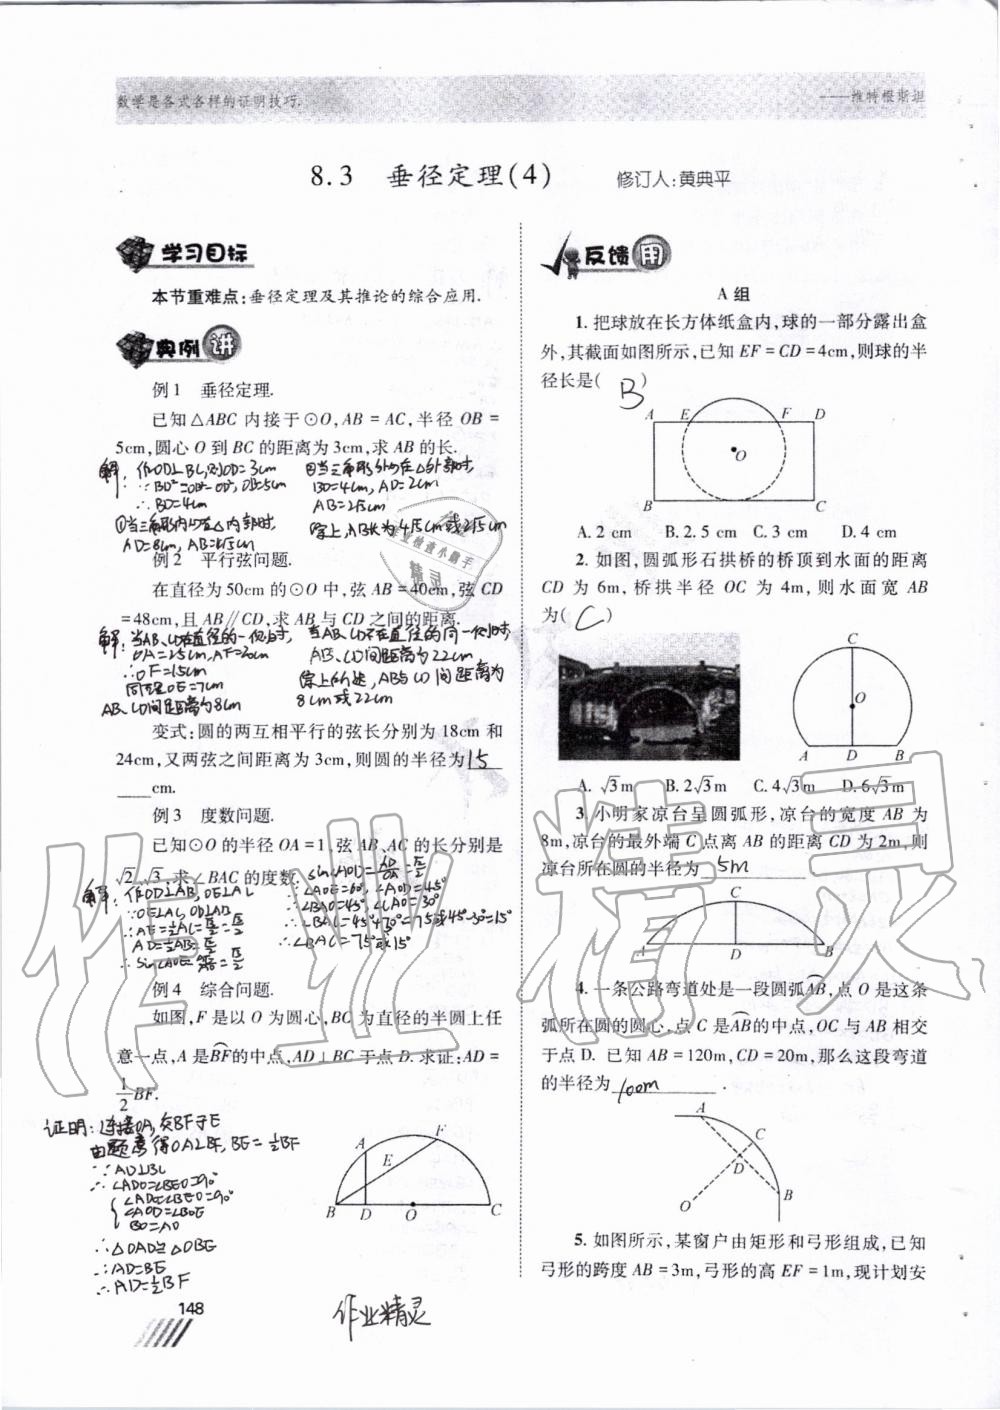 数学是各式各样的证明技巧.
——维特根斯坦
8.3 垂径定理(4) 修订人:黄典平
学习目标
本节重难点:垂径定理及其推论的综合应用.
典例 讲
例1 垂径定理.
已知△ABC 内接于⊙O,AB = AC,半径 OB =
5cm,圆心 O 到 BC 的距离为3cm,求 AB 的长.
解:作OD⊥BC,则OD=3cm
∵BD²=OB²-OD²,OB=5cm
∴BD=4cm
①当三角形内心在△内部时,
AD=8cm, AB=4√5cm
②当三角形外心在△外部时,
BD=4cm, AD=2cm
AB=2√5cm
综上,AB长为4√5cm或2√5cm
例2 平行弦问题.
在直径为50cm的⊙O 中,弦 AB = 40cm,弦 CD
=48cm,且 AB∥CD,求 AB 与 CD 之间的距离.
解:当AB、CD在直径的一侧时,
OA=25cm,AF=20cm
∴OF=15cm
同理OE=7cm
AB、CD间距离为8cm
当AB、CD不在直径的同一侧时,
AB、CD间距离为22cm
综上所述,AB与CD间距离为
8cm或22cm
变式:圆的两互相平行的弦长分别为18cm 和
24cm,又两弦之间距离为3cm,则圆的半径为15
cm.
例3 度数问题.
已知⊙O 的半径 OA = 1,弦 AB、AC 的长分别是
√2、√3,求∠BAC 的度数.
解:作OD⊥AB,OE⊥AC
∵OE⊥AC,OD⊥AB
∴AE=½AC=√3/2
AD=½AB=√2/2
∴sin∠AOE= =√3/2
sin∠AOD=AD/OA=√2/2
∴∠AOE=60°,∠AOD=45°
∴∠BAO=45°,∠CAO=30°
∴∠BAC=45°+30°=75°或45°-30°=15°
∴∠BAC=75°或15°
例4 综合问题.
如图,F 是以 O 为圆心,BC 为直径的半圆上任
意一点,A 是BF的中点,AD⊥BC 于点 D. 求证:AD =
1/2 BF.
证明:连接OA,交BF于E
由题意得OA⊥BF,BE=½BF
∵AD⊥BC
∴∠ADO=∠BEO=90°
∠ADO=∠BEO=90°
∠AOD=∠BOE
BO=AO
∴△OAD≌△OBE
∴AD=BE
∴AD=½BF
A F E B D O C
148
作业精灵
反馈 用
A 组
1. 把球放在长方体纸盒内,球的一部分露出盒
外,其截面如图所示,已知 EF = CD = 4cm,则球的半
径长是( B )
A E F D
O
B C
A. 2 cm B. 2.5 cm C. 3 cm D. 4 cm
2. 如图,圆弧形石拱桥的桥顶到水面的距离
CD 为 6m,桥拱半径 OC 为 4m,则水面宽 AB
为( C )
C
O
A D B
A. √3m B. 2√3m C. 4√3m D. 6√3m
3. 小明家凉台呈圆弧形,凉台的宽度 AB 为
8m,凉台的最外端 C 点离 AB 的距离 CD 为2m,则
凉台所在圆的半径为 5m
C
A D B
4. 一条公路弯道处是一段圆弧AB,点 O 是这条
弧所在圆的圆心,点 C 是AB的中点,OC 与 AB 相交
于点 D. 已知 AB = 120m,CD = 20m,那么这段弯道
的半径为 100m .
A
C
D
B
O
5. 如图所示,某窗户由矩形和弓形组成,已知
弓形的跨度 AB = 3m,弓形的高 EF = 1m,现计划安
作业精灵